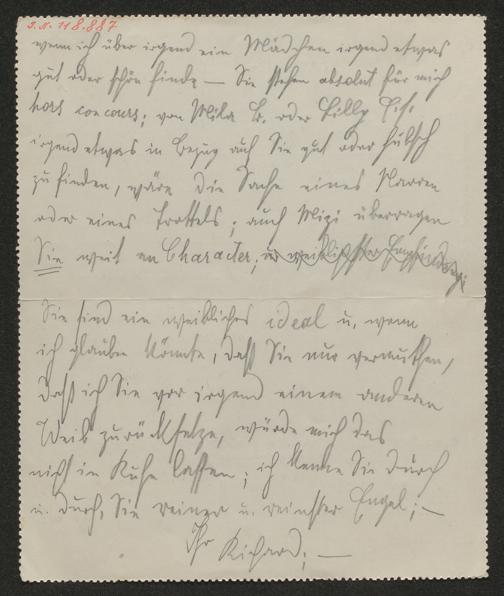 I.N. 118.887
wenn ich über irgend ein Mädchen irgend etwas
gut oder schön finde — Sie stehen absolut für mich
hors concours; von Mika B. oder Lilly
irgend etwas in Bezug auf Sie gut oder hübsch
zu finden, wäre die Sache eines Narren
oder eines Trottels; auch Mizi überragen
Sie weit an Character;
Sie sind ein weibliches ideal u. wenn
ich glauben könnte, daß Sie nur vermuthen,
daß ich Sie vor irgend einem anderen
Weib zurücksetze, würde mich das
nicht in Ruhe lassen; ich kenne Sie durch
u. durch, Sie reiner u. reinster Engel; —
Ihr Richard; —